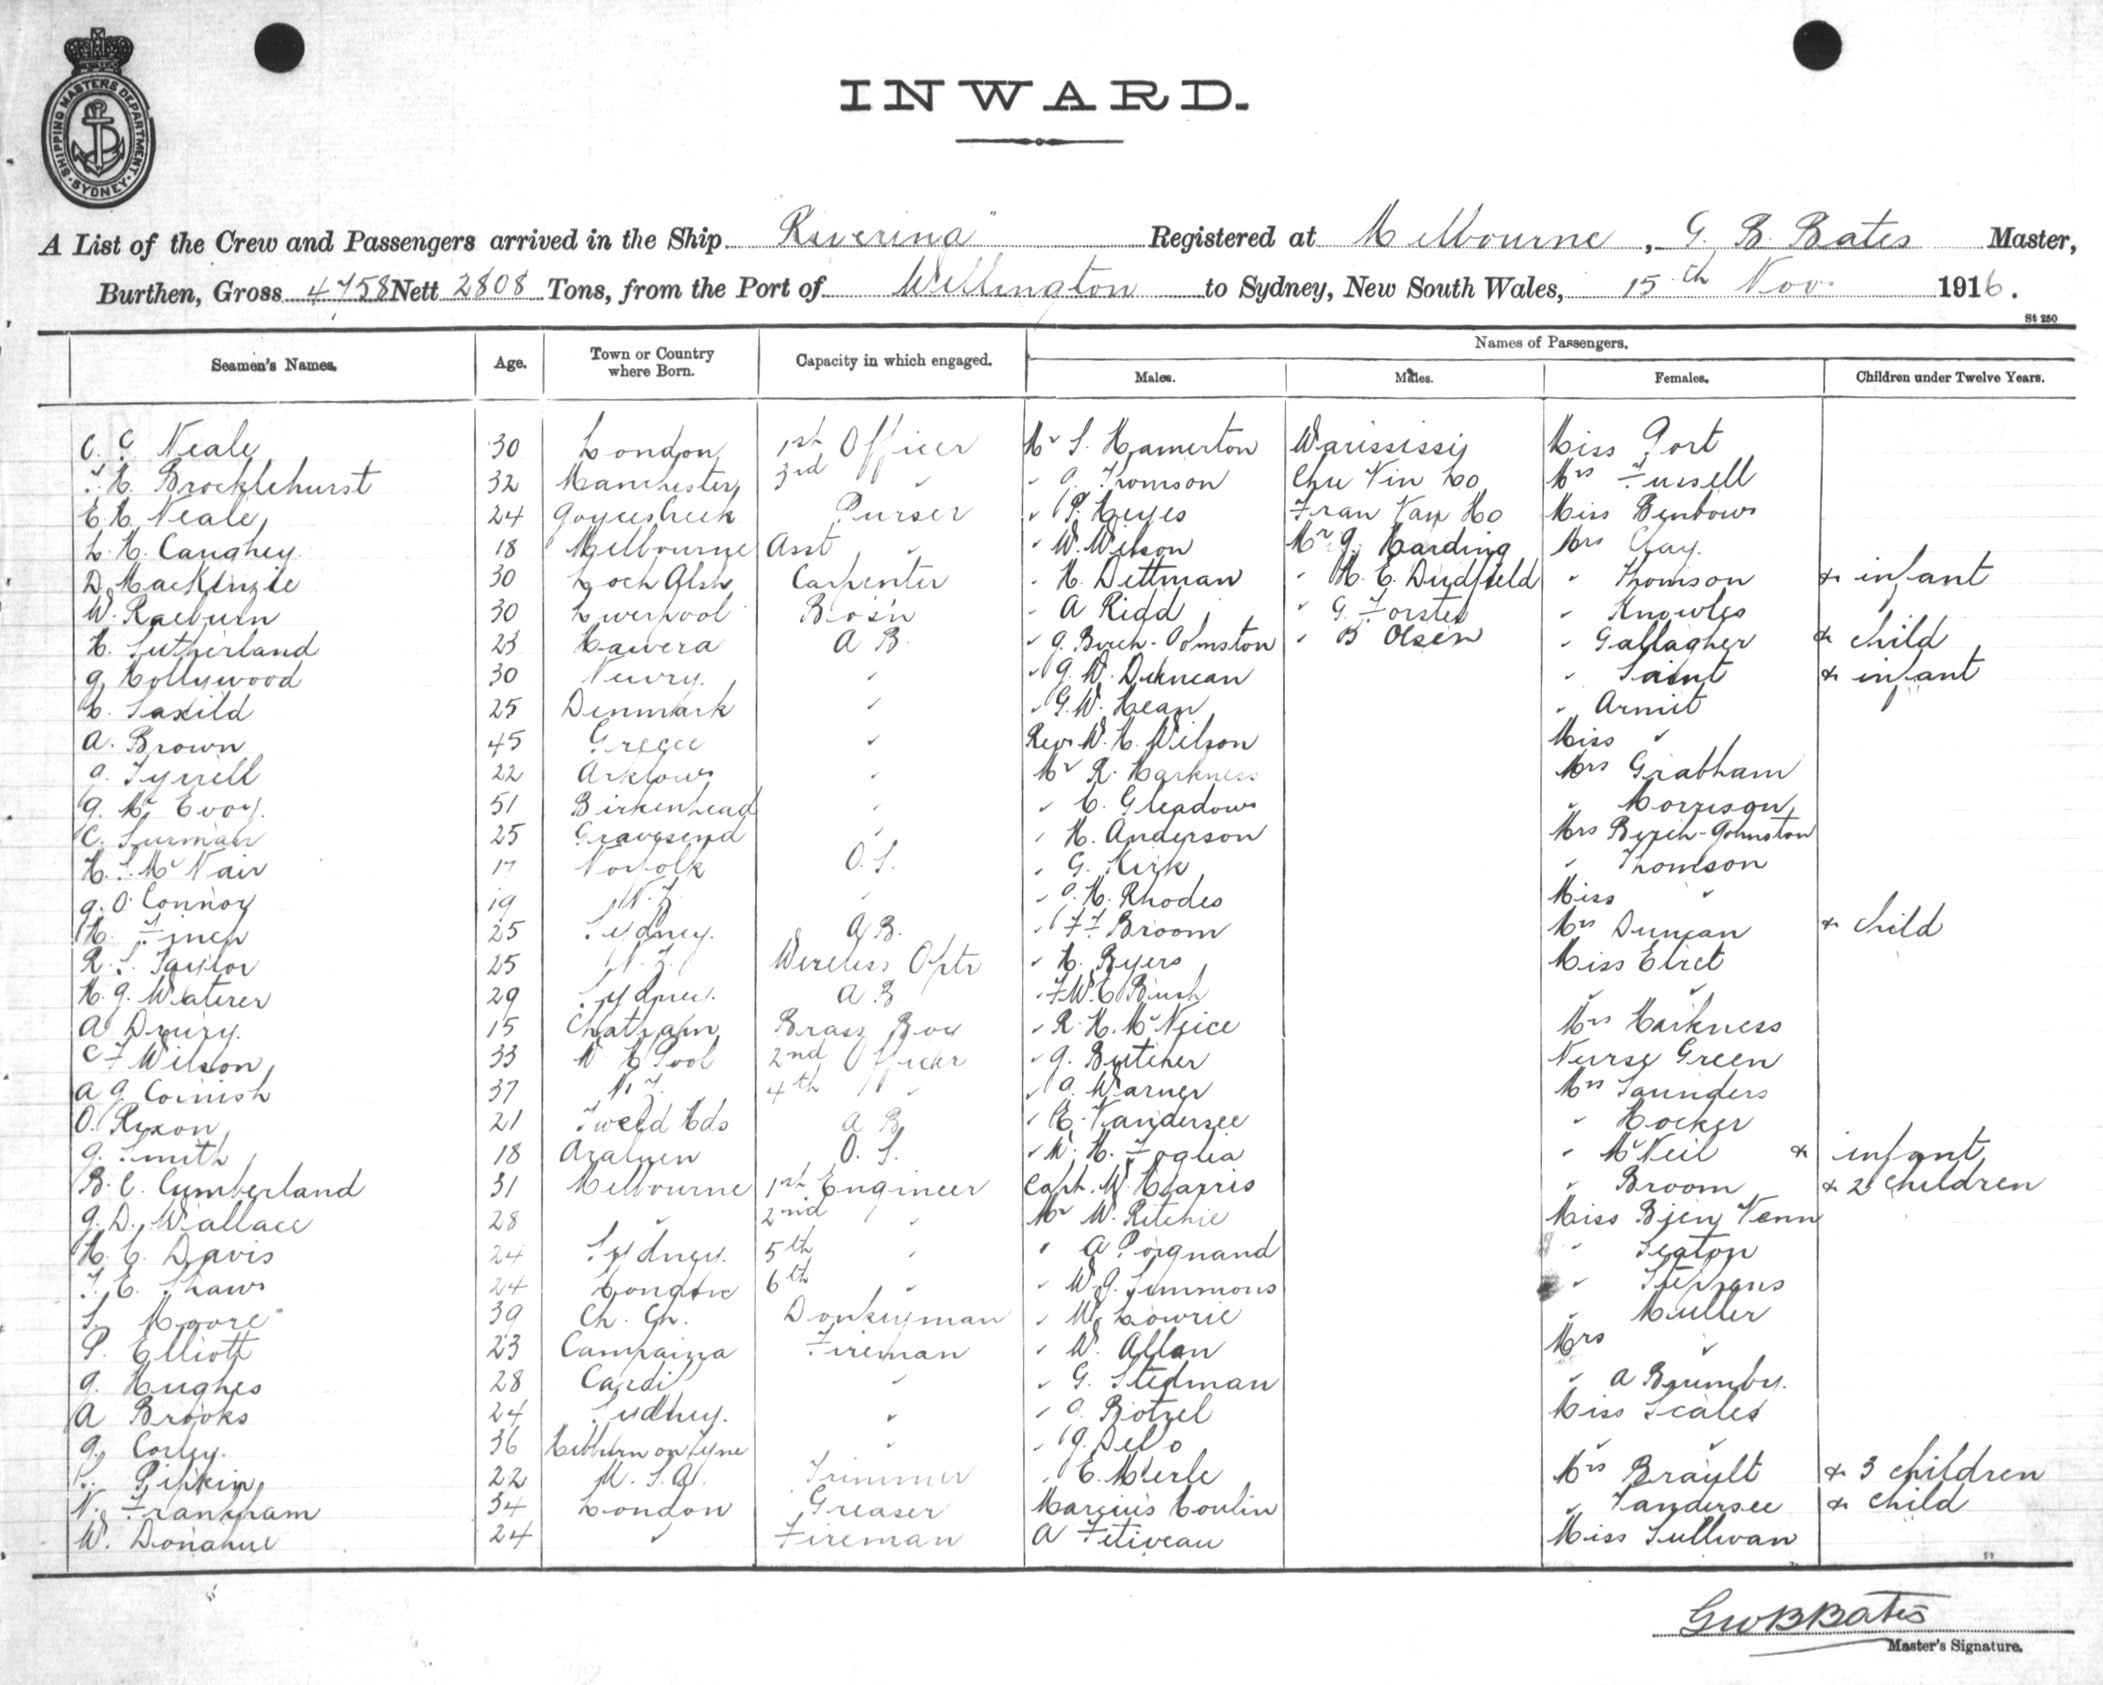 SHIPPING MASTERS DEPARTMENT. SYDNEY.
INWARD.
A List of the Crew and Passengers arrived in the Ship "Riverina" Registered at Melbourne, G. B. Bates Master,
Burthen, Gross 4758 Nett 2808 Tons, from the Port of Wellington to Sydney, New South Wales, 15th Nov. 1916.
St 250
Seamen's Names. Age. Town or Country where Born. Capacity in which engaged. Names of Passengers.
Males. Males. Females. Children under Twelve Years.
Neale 30 London 1st Officer Mr S. Hamerton Miss Port
Brocklehurst 32 Manchester 3rd " " Thomson Mrs
E. H. Neale 24 Purser " P. Keyes Miss Benbow
L. H. Caughey 18 Melbourne Asst " " W. Wilson Mr J. Harding Mrs Clay.
D. MacKenzie 30 Loch Alsh Carpenter " H. Dittman " H. E. Dudfield " Thomson & infant
W. Raeburn 30 Liverpool Bo's'n " A Ridd " G. Forster " Knowles
H. Sutherland 23 Hawera A B. " J. Birch-Johnston " B Olsen " Gallagher & child
J. Hollywood 30 Newry. " " J. W. Duncan " Saint & infant
Saxild 25 Denmark " " G. W. Hean " Armit
A. Brown 45 Greece " Rev. W. H. Wilson Miss "
J. Tyrrell 22 Arklow " Mr R. Harkness Mrs Grabham
J. McEvoy. 51 Birkenhead " " C. Gleadow " Morrison
C. Surman 25 Gravesend " " H. Anderson Mrs Birch-Johnston
H. S. McNair 17 Norfolk O. S. " G. Kirk " Thomson
J. O'Connor 19 N. Z. " " H. Rhodes Miss "
H. Finch 25 Sydney. A B. " F. Broom Mrs Duncan & child
R. S. Taylor 25 N. Z. Wireless Optr " H. Byers Miss Elret
H. J. Waterer 29 Sydney. A B " F W. E Bush " "
A Drury. 15 Chatham Brass Boy " R. H. McNeice Mrs Harkness
C F Wilson 33 W H Pool 2nd Officer " J. Butcher Nurse Green
A J Cornish 37 N. Z. 4th " " J. Warner Mrs Saunders
O. Ryxon 21 Tweed Hds A B " E. Vandersee " Hocker
J. Smith 18 O. S. " W. H. Foglia " McNeil & infant
B. C. Cumberland 31 Melbourne 1st Engineer Capt. W. Harris " Broom & 2 children
J. D. Wallace 28 " 2nd " Mr W. Ritchie Miss Venn
H. C. Davis 24 Sydney. 5th " " A Poignand " Seaton
E. Shaw 24 London 6th " " W. J. Simmons " Stephens
S. Moore 39 Ch. Ch. Donkeyman " W. Lowrie " Muller
P. Elliott 23 Fireman " W. Allan Mrs "
J. Hughes 28 Cardiff " " G. Stedman " A Brumby.
A Brooks 24 Sydney. " " J. Botzel Miss Scales
J. Corley. 36 Hebburn on Tyne " " J. " "
Pipkin 22 U. S. A. Trimmer " E. Merle Mrs Brault & 3 children
N. Frankham 34 London Greaser Marcius Coulin " Vandersee & child
W. Donahue 24 " Fireman A Fetiveau Miss Sullivan
Geo B Bates
Master's Signature.